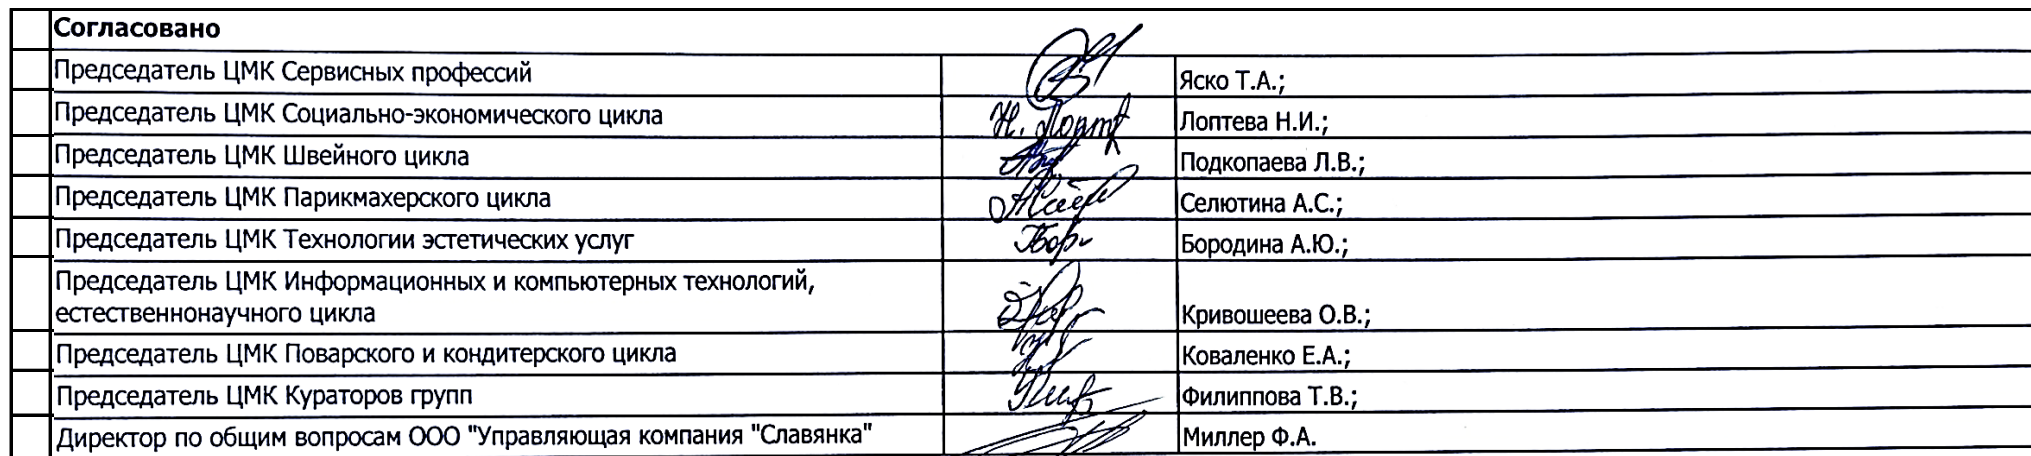 Согласовано
Председатель ЦМК Сервисных профессий Яско Т.А.;
Председатель ЦМК Социально-экономического цикла Лоптева Н.И.;
Председатель ЦМК Швейного цикла Подкопаева Л.В.;
Председатель ЦМК Парикмахерского цикла Селютина А.С.;
Председатель ЦМК Технологии эстетических услуг Бородина А.Ю.;
Председатель ЦМК Информационных и компьютерных технологий,
естественнонаучного цикла Кривошеева О.В.;
Председатель ЦМК Поварского и кондитерского цикла Коваленко Е.А.;
Председатель ЦМК Кураторов групп Филиппова Т.В.;
Директор по общим вопросам ООО "Управляющая компания "Славянка" Миллер Ф.А.